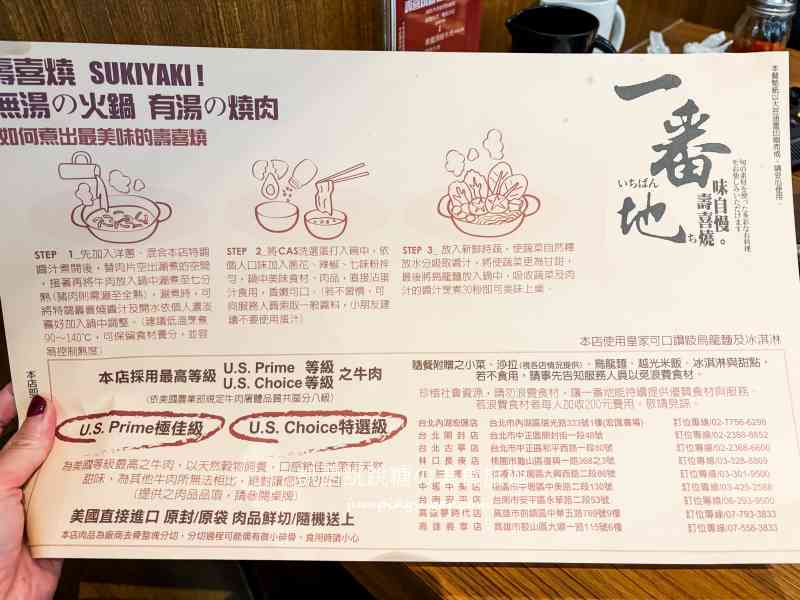 壽喜燒 SUKIYAKI!
無湯の火鍋 有湯の燒肉
如何煮出最美味的壽喜燒
一番地
いちばん
ち
味自慢。
壽喜燒
STEP 1_先加入洋蔥、混合本店特調
醬汁煮開後，替肉片空出涮煮的空間
，接著再將牛肉放入鍋中涮煮至七分
熟(豬肉則需涮至全熟)，涮煮時，可
將特調壽喜燒醬汁及開水依個人濃淡
喜好加入鍋中調整。(建議低溫烹煮
90～140℃，可保留食材養分，並容
易控制熟度)
STEP 2_將CAS洗選蛋打入碗中，依
個人口味加入蔥花、辣椒、七味粉拌
勻，鍋中美味食材、肉品，直接沾蛋
汁食用，香嫩可口。(若不習慣，可
向服務人員索取一般醬料，小朋友建
議不要使用蛋汁)
STEP 3_放入新鮮時蔬，使蔬菜自然釋
放水分吸取醬汁，將使蔬菜更為甘甜，
最後將烏龍麵放入鍋中，吸收蔬菜及肉
汁的醬汁烹煮30秒即可美味上桌。
本店使用皇家可口讚岐烏龍麵及冰淇淋
本店採用最高等級 U.S. Prime 等級 U.S. Choice 等級 之牛肉
(依美國農業部規定牛肉屠體品質共區分八級)
U.S. Prime極佳級
U.S. Choice特選級
為美國等級最高之牛肉，以天然穀物飼養，口感
(提供之肉品品項，請參閱桌牌)
美國直接進口 原封/原袋 肉品鮮切/隨機送上
本店肉品為廠商去骨整塊分切，分切過程可能偶有微小碎骨、食用時請小心
隨餐附贈之小菜、沙拉(視各店情況提供)、烏龍麵、越光米飯、冰淇淋與甜點，
若不食用，請事先告知服務人員以免浪費食材。
珍惜社會資源，請勿浪費食材，讓一番地能持續提供優質食材與服務。
若浪費食材者每人加收200元費用，敬請見諒。
台北內湖宏匯店 台北市內湖區瑞光路333號1樓(宏匯廣場) 訂位專線/02-7756-6298
台北開封店 台北市中正區開封街一段48號 訂位專線/02-2388-8652
台北古亭店 台北市中正區和平西路一段80號 訂位專線/02-2368-6666
林口長庚店 桃園市龜山區復興一路368之3號 訂位專線/03-328-8869
訂位專線/03-301-9500
訂位專線/03-425-2588
台南安平店 台南市安平區永華路二段53號 訂位專線/06-293-9500
高雄夢時代店 高雄市前鎮區中華五路789號9樓 訂位專線/07-793-3833
高雄義享店 高雄市鼓山區大順一路115號6樓 訂位專線/07-558-3833